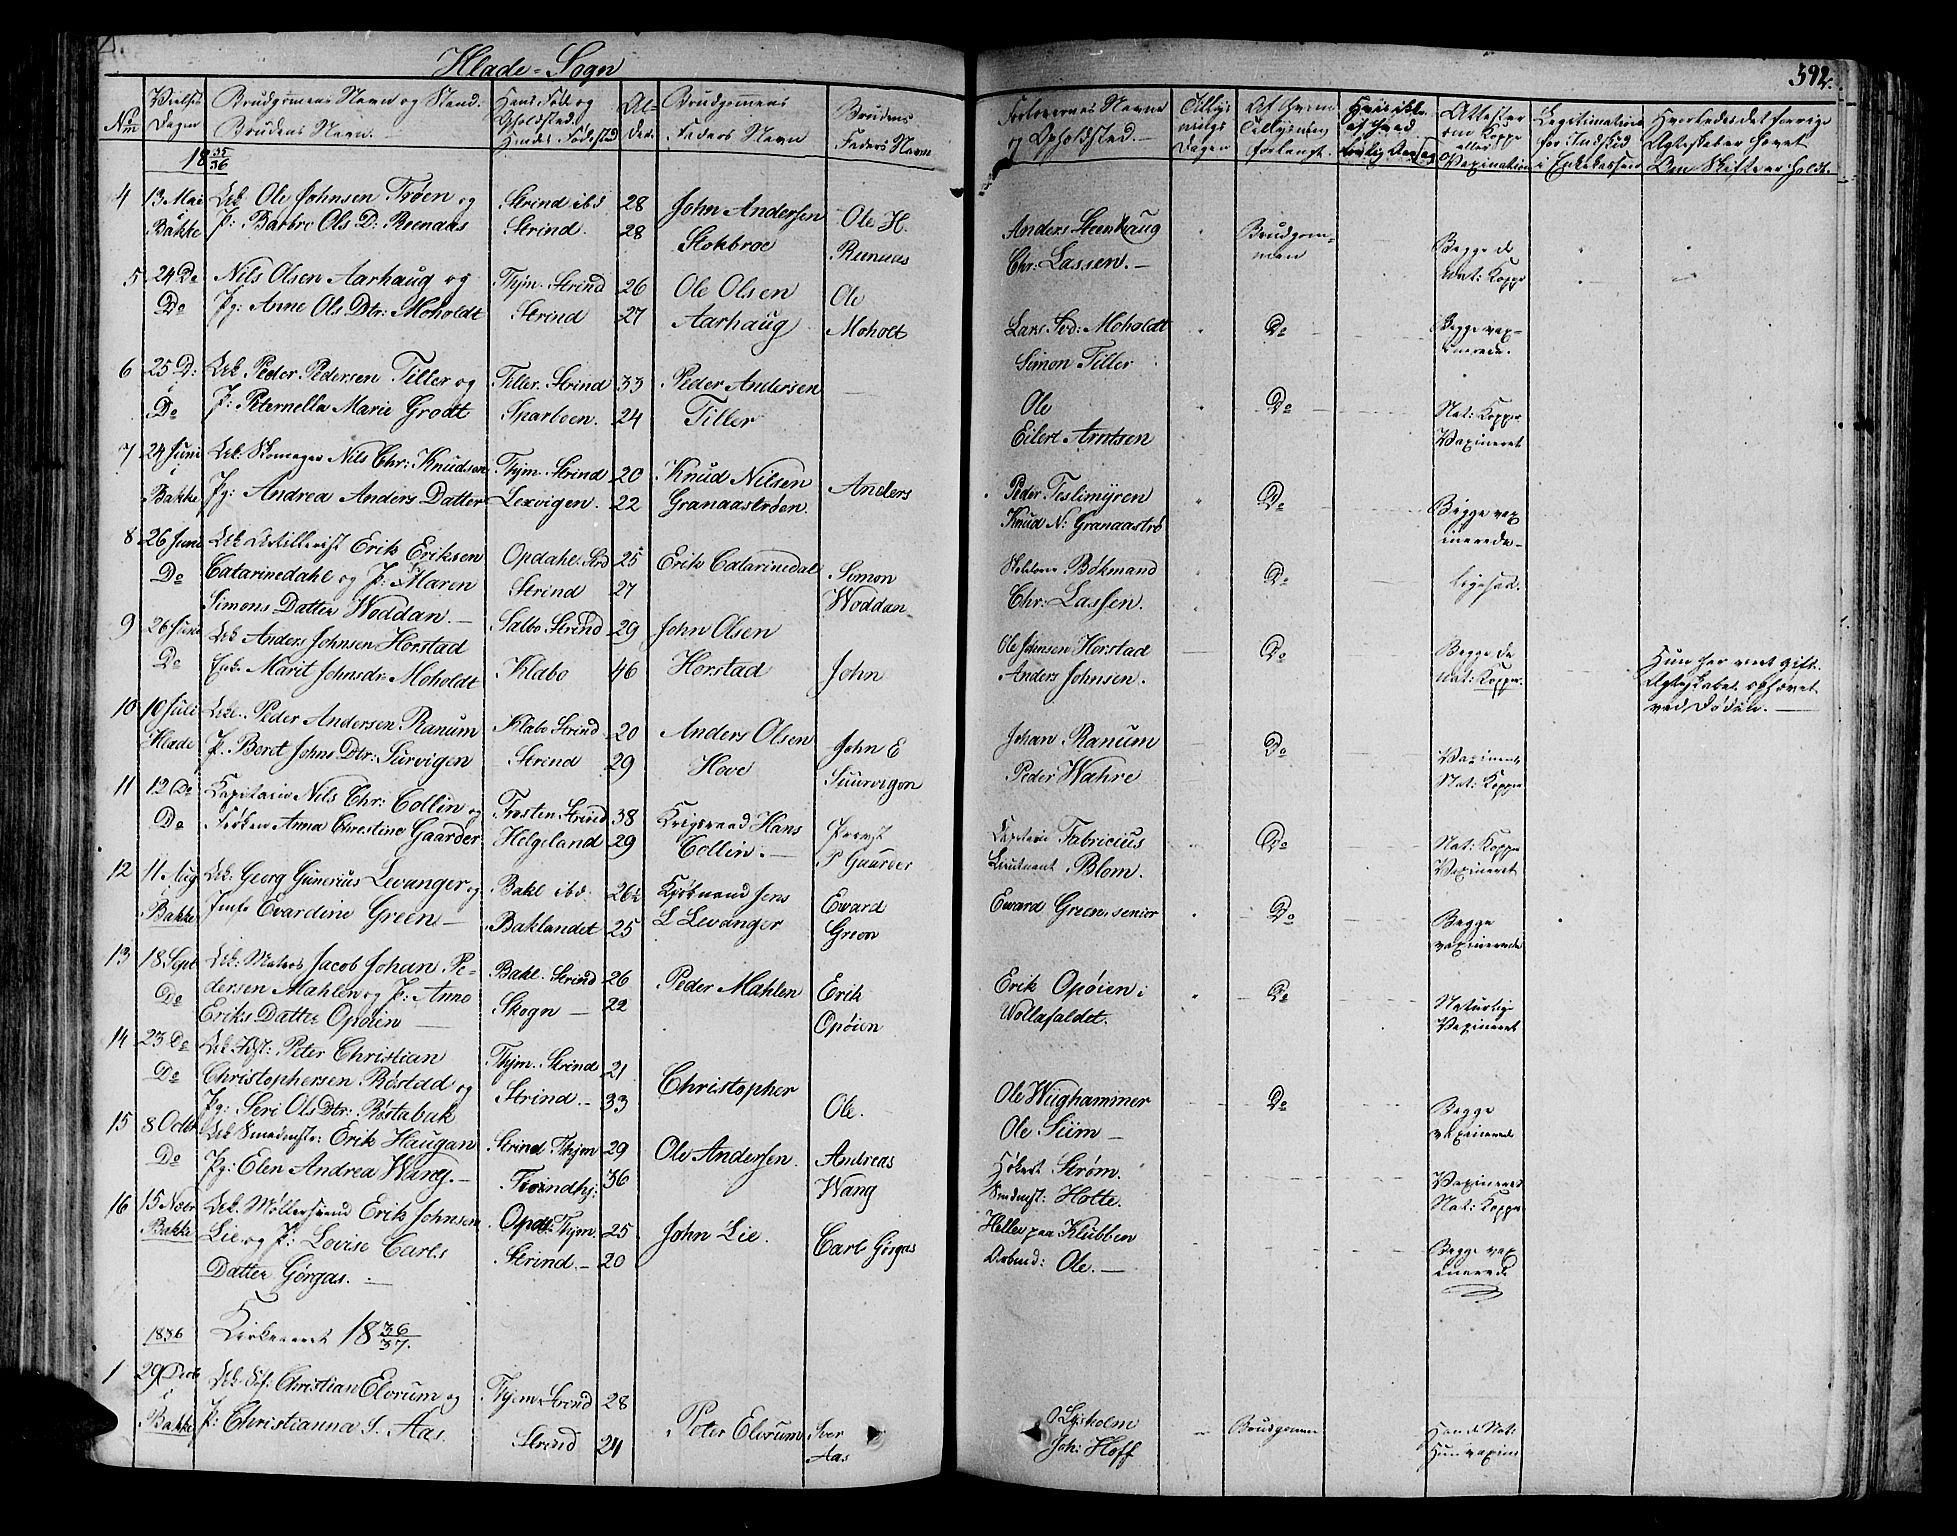 Hlade-Sogn
392.
Num
Vielses Dagen
Brudgomens Navn og Stand.
Brudens Navn.
Hans Føde og
Opholdsted.
Hendes Fødested
Al-
der.
Brudgomens
Faders Navn
Brudens
Faders Navn
Forlovernes Navne
og Opholdsted.
Tillys
nings
Dagen
Af hvem
Tillysningen
forlangt.
Attester
om Koppe
eller
Vaxination
Legitimation
for Indskud
i Enkekassen
Hvorledes det forrige
Ægteskab er hævet
Om Skifte er holdt.
18 35/36
4 13 Mai Bakke
Ole Johnsen Trøen og
P: Barbro Ols D: Renaas
Strind ibd 28
Strind. 28
John Andersen
Stokbroe
Ole H.
Renaas
Anders Steenhaug
Chr: Lassen.
Brudgom-
men
Begge de
nat: Kopper
5 24 Do
Do
Nils Olsen Aarhaug og
Pg: Anne Ols Dtr: Moholdt
Thjm. Strind 26
Strind 27
Ole Olsen
Aarhaug
Ole
Moholt
Lars Moholdt
Simon Tiller
Do
Begge vax-
inerede.
6 25 D:
Do
Peder Pedersen Tiller og
P: Peternella Marie Grodt
Tiller. Strind 33
Sparboen. 24
Peder Andersen
Tiller
Ole
Eilert Arntsen
Do
Nat: Kopper
Vaxineret
7 24 Juni
Bakke
Skomager Nils Chr: Knudsen
Pg: Andrea Anders Datter
Thjm. Strind 20
Lexvigen. 22
Knud Nilsen
Granaastrøen.
Anders
Peder Teslimyren
Knud N: Granaastrø
Do
Begge vax
inerede
8 26 Juni
Do
Destillerist Erik Eriksen
Catarinedahl og P: Maren
Simons Datter Woddan.
Opdahl. Strd 25
Strind 27
Erik Catarinedal
Simon
Woddan
Bökmand
Chr: Lassen.
Do
ligesaa.
9 26 Juni
Do
Anders Johnsen Horstad
Enk: Marit Johnsdr: Moholdt
Salbo Strind 29
Klabo 46
John Olsen
Horstad
John
Ole Johnsen Horstad
Anders Johnsen.
Do
Begge de
nat: Kopper.
Hun har vært gift.
Ægteskabet ophævet
ved Døden.
10 10 Juli
Hlade
Peder Andersen Ranum
P. Beret Johns Dtr: Survigen
Klabo Strind 20
Strind 29
Anders Olsen
Hove
John E
Suurvigen
Johan Ranum
Peder Wahre
Do
Vaxineret
Nat: Kopper
11 12 Do
Do
Kapitain Nils Chr: Collin og
Frøken Anna Christine Gaarder
Frosten Strind 38
Helgeland 29
Krigsraad Hans
Collin.
Provst
P Gaarder
Capitain Fabricius
Lieutnant Blom.
Do
Nat: Kopper
Vaxineret
12 11 Aug
Bakke
Georg Gunerius Levanger og
Jomfr Evardine Green
Bakl ibd. 26½
Baklandet 25
Kjøbmand Jens
L Levanger
Eward
Green
Eward Green, senior
Do
Begge
vaxinerede
13 18 Sept
Do
Matros Jacob Johan Pe-
dersen Mahlen og P: Anne
Eriks Datter Opøien
Bakl. Strind 26
Skogn 22
Peder Mahlen
Erik
Opøien
Erik Opøien i
Wollafaldet.
Do
Naturlige
Vaxineret
14 23 Do
Do
Peter Christian
Christophersen Røstad og
Pg: Seri Ols Dtr: Røstabak
Thjm. Strind 21
Strind. 33
Christopher
Ole.
Ole Wughammer
Ole Siim
Do
Begge
vaxinerede
15 8 Octbr
Do
Smedmstr: Erik Haugan
Pg: Elen Andrea Wang.
Strind Thjm 29
Trondhj: 36
Ole Andersen.
Andreas
Wang
Strøm.
Smedmst: Hotte.
Vaxineret
Nat: Koppe
16 15 Nver
Bakke
Møllersvend Erik Johnsen
Lie og P: Lovise Carls
Datter Gørgas.
Opdl: Thjm. 25
Strind. 20
John Lie.
Carl Gørgas
Heller paa Klubben
Arbmd: Ole.
Begge vax
inerede
1836
Kirkeaaret 18 36/37.
1
Bakke
Christian Elvrum og
P: Christianna S. Aas.
Thjem Strind 28
Strind 24
Peter Elvrum
Iver
Aas
O Lysholm
Joh: Hoff
Brudgomen
Han d. Nat:
Hun vaxin